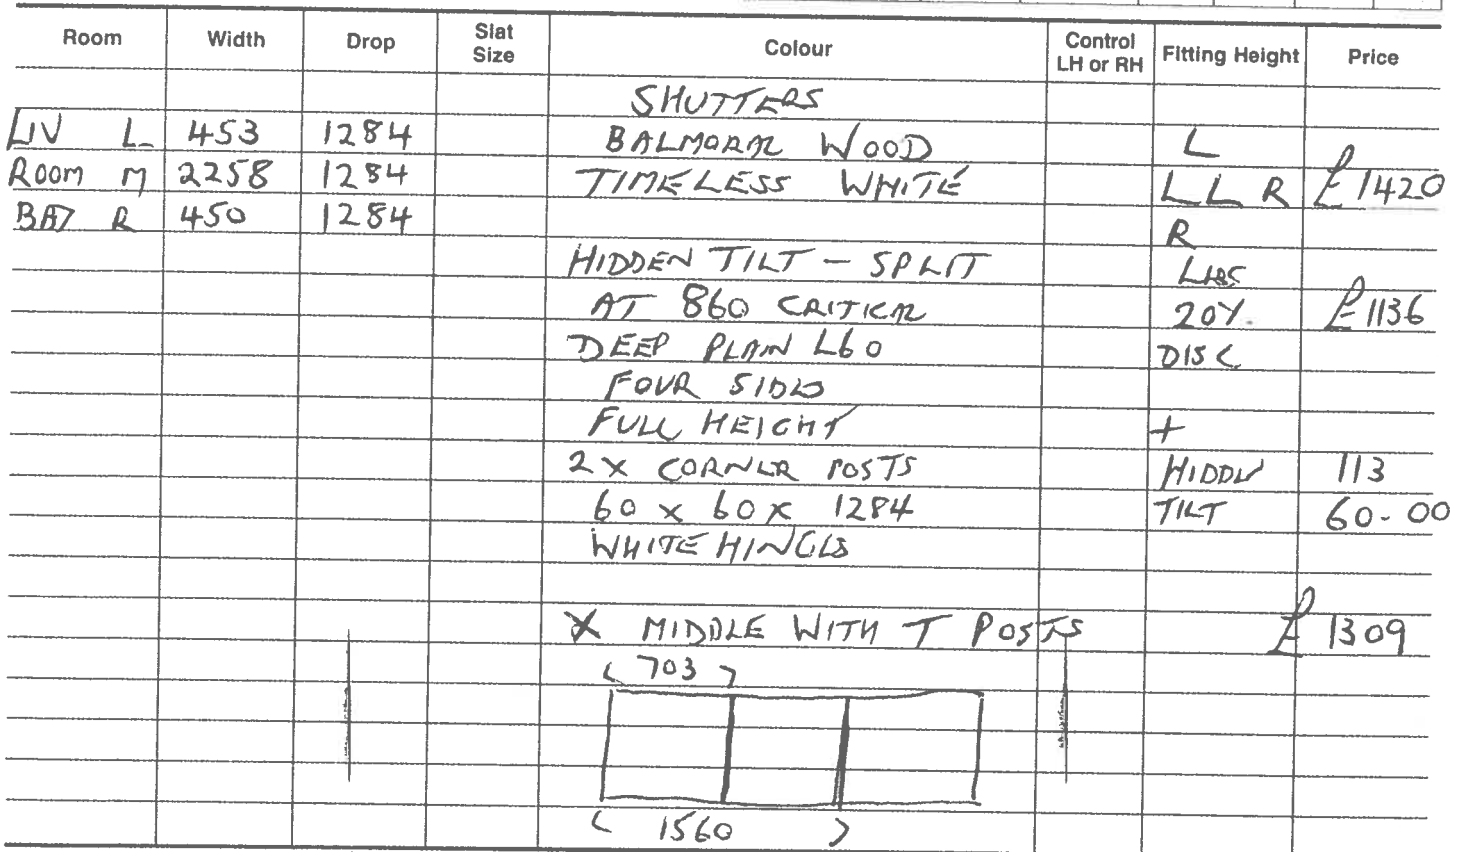 Room Width Drop Slat Size Colour Control LH or RH Fitting Height Price
SHUTTERS
LIV L 453 1284 BALMORAL WOOD L
ROOM M 2258 1284 TIMELESS WHITE L L R £1420
BAY R 450 1284 R
HIDDEN TILT - SPLIT LESS
AT 860 CRITICAL 20% £1136
DEEP PLAIN L60 DISC
FOUR SIDED
FULL HEIGHT +
2 X CORNER POSTS HIDDEN 113
60 x 60 x 1284 TILT 60-00
WHITE HINGES
X MIDDLE WITH T POSTS £1309
703
1560